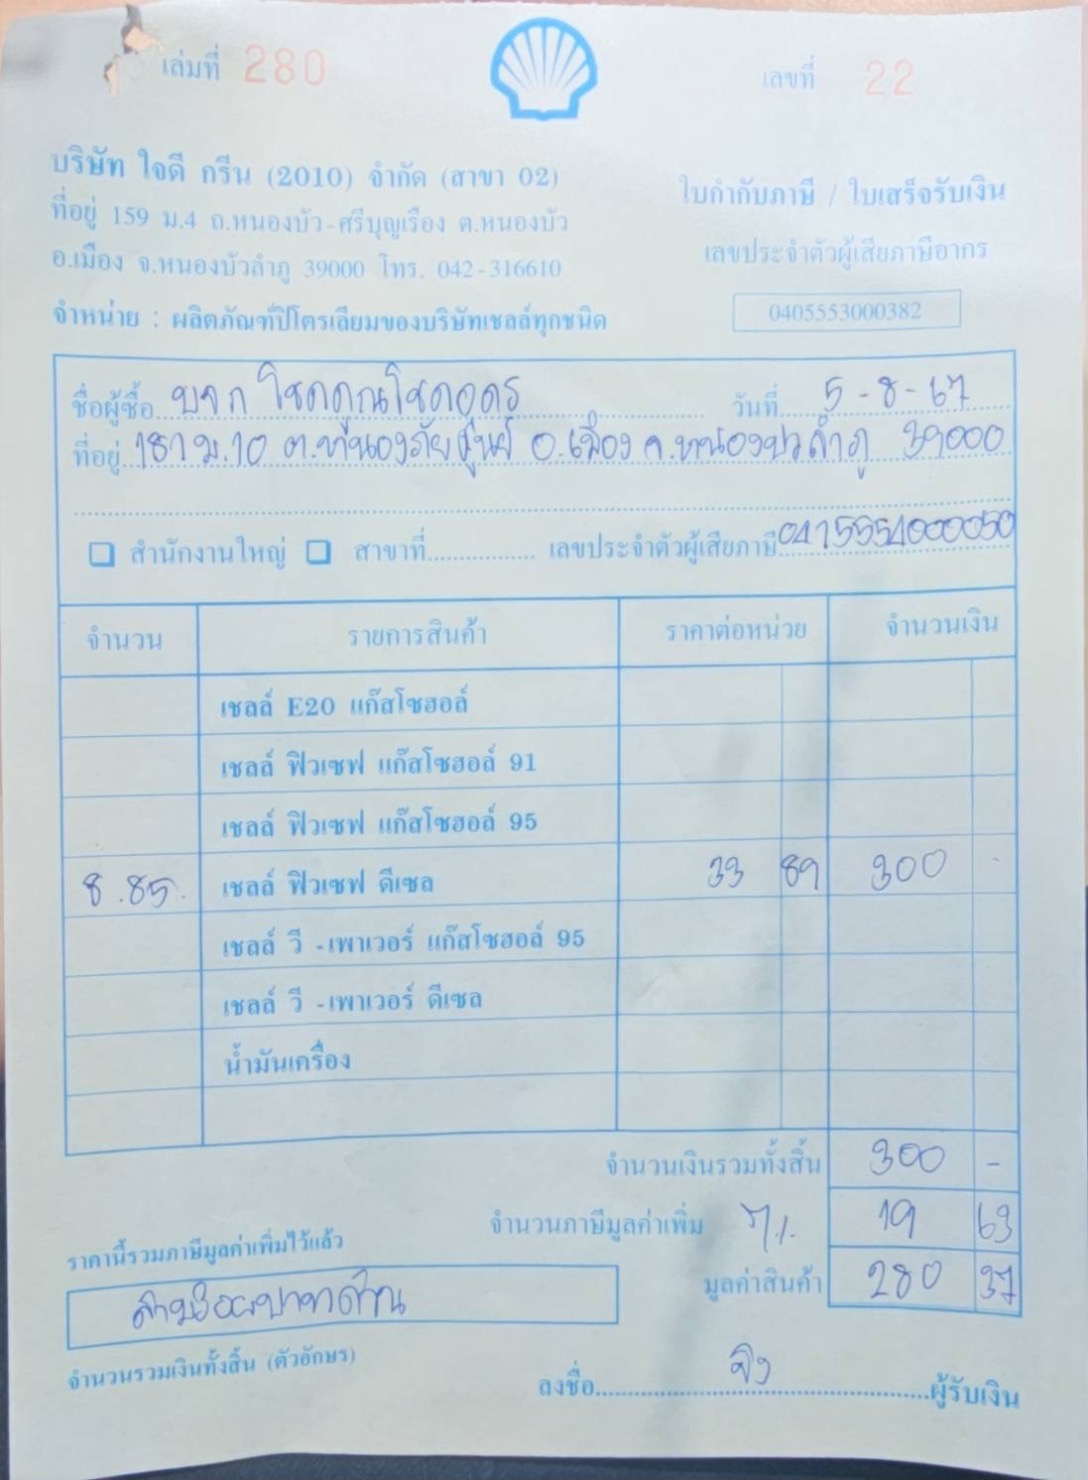 เล่มที่ 280
เลขที่ 22
บริษัท ใจดี กรีน (2010) จำกัด (สาขา 02)
ที่อยู่ 159 ม.4 ถ.หนองบัว-ศรีบุญเรือง ต.หนองบัว
อ.เมือง จ.หนองบัวลำภู 39000 โทร. 042-316610
จำหน่าย : ผลิตภัณฑ์ปิโตรเลียมของบริษัทเชลล์ทุกชนิด
ใบกำกับภาษี / ใบเสร็จรับเงิน
เลขประจำตัวผู้เสียภาษีอากร
0405553000382
ชื่อผู้ซื้อ บจก โชคคูณโชคอุดร วันที่ 5-8-67
ที่อยู่ 181 ม.10 ต.หนองภัยศูนย์ อ.เมือง จ.หนองบัวลำภู 39000
สำนักงานใหญ่ สาขาที่ เลขประจำตัวผู้เสียภาษี 0415551000050
จำนวน รายการสินค้า ราคาต่อหน่วย จำนวนเงิน
เชลล์ E20 แก๊สโซฮอล์
เชลล์ ฟิวเซฟ แก๊สโซฮอล์ 91
เชลล์ ฟิวเซฟ แก๊สโซฮอล์ 95
8.85 เชลล์ ฟิวเซฟ ดีเซล 33 89 300 -
เชลล์ วี -เพาเวอร์ แก๊สโซฮอล์ 95
เชลล์ วี -เพาเวอร์ ดีเซล
น้ำมันเครื่อง
จำนวนเงินรวมทั้งสิ้น 300 -
จำนวนภาษีมูลค่าเพิ่ม 7% 19 63
มูลค่าสินค้า 280 37
ราคานี้รวมภาษีมูลค่าเพิ่มไว้แล้ว
สามร้อยบาทถ้วน
จำนวนรวมเงินทั้งสิ้น (ตัวอักษร)
ลงชื่อ ผู้รับเงิน